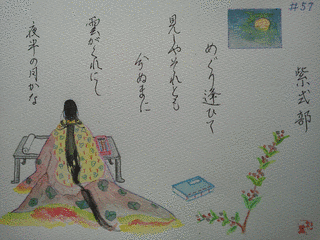 #57
紫式部
めぐり逢ひて
見しやそれとも
分ぬまに
雲がくれにし
夜半の月かな